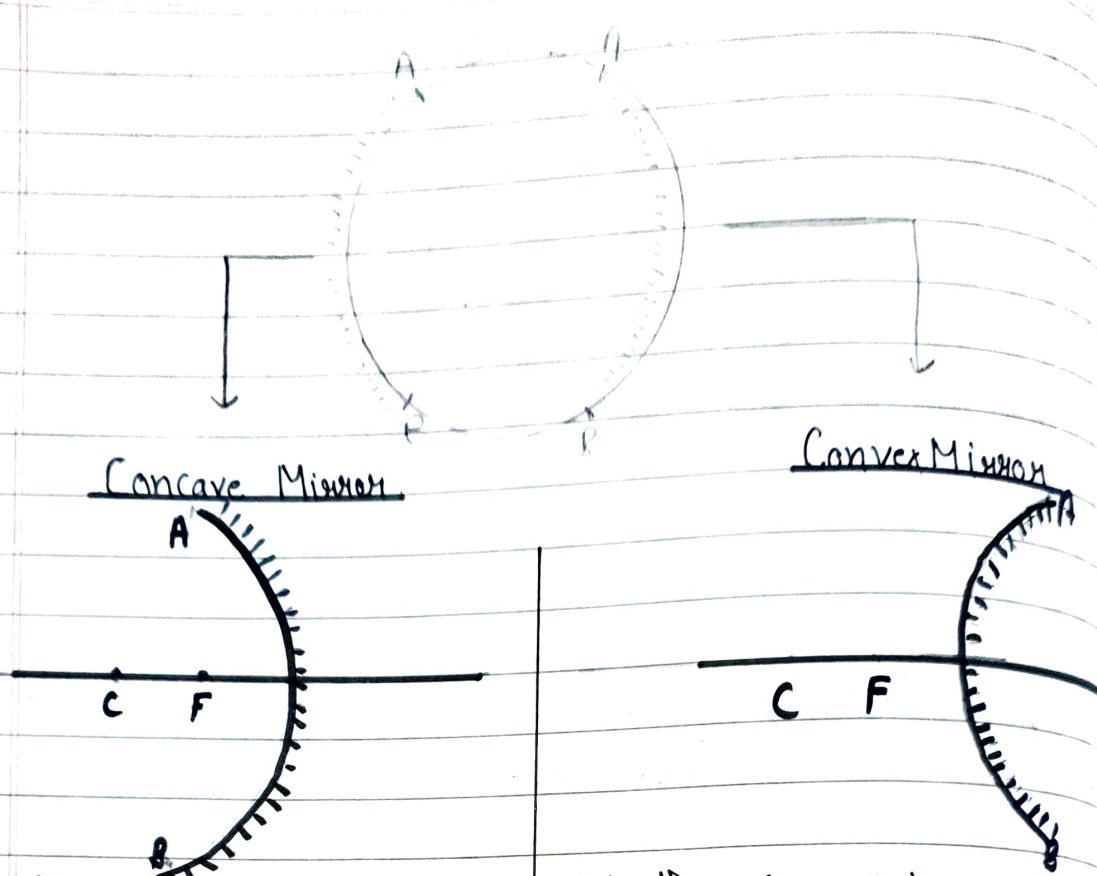 A A
B B
Concave Mirror
Convex Mirror
A A
C F C F
B B